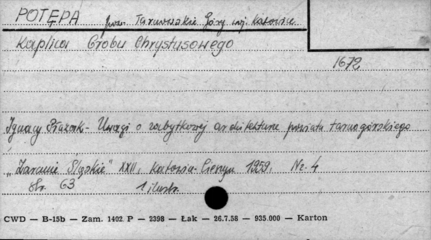 POTĘPA pow. Tarnowskie Góry woj. Katowice
Kaplica Grobu Chrystusowego
1672
Ignacy Płazak - Uwagi o zabytkowej architekturze powiatu tarnogórskiego
„Zaranie Śląskie" XXII, Katowice-Cieszyn 1959, Nr. 4
str. 63 1 ilustr.
CWD — B-15b — Zam. 1402 P — 2398 — Łak — 26.7.56 — 935.000 — Karton